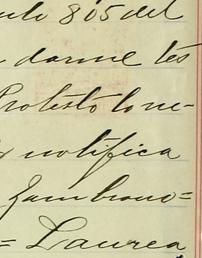 805 del
darme tes
Protesto lo ne-
notifica
Zambrano=
= Laurea